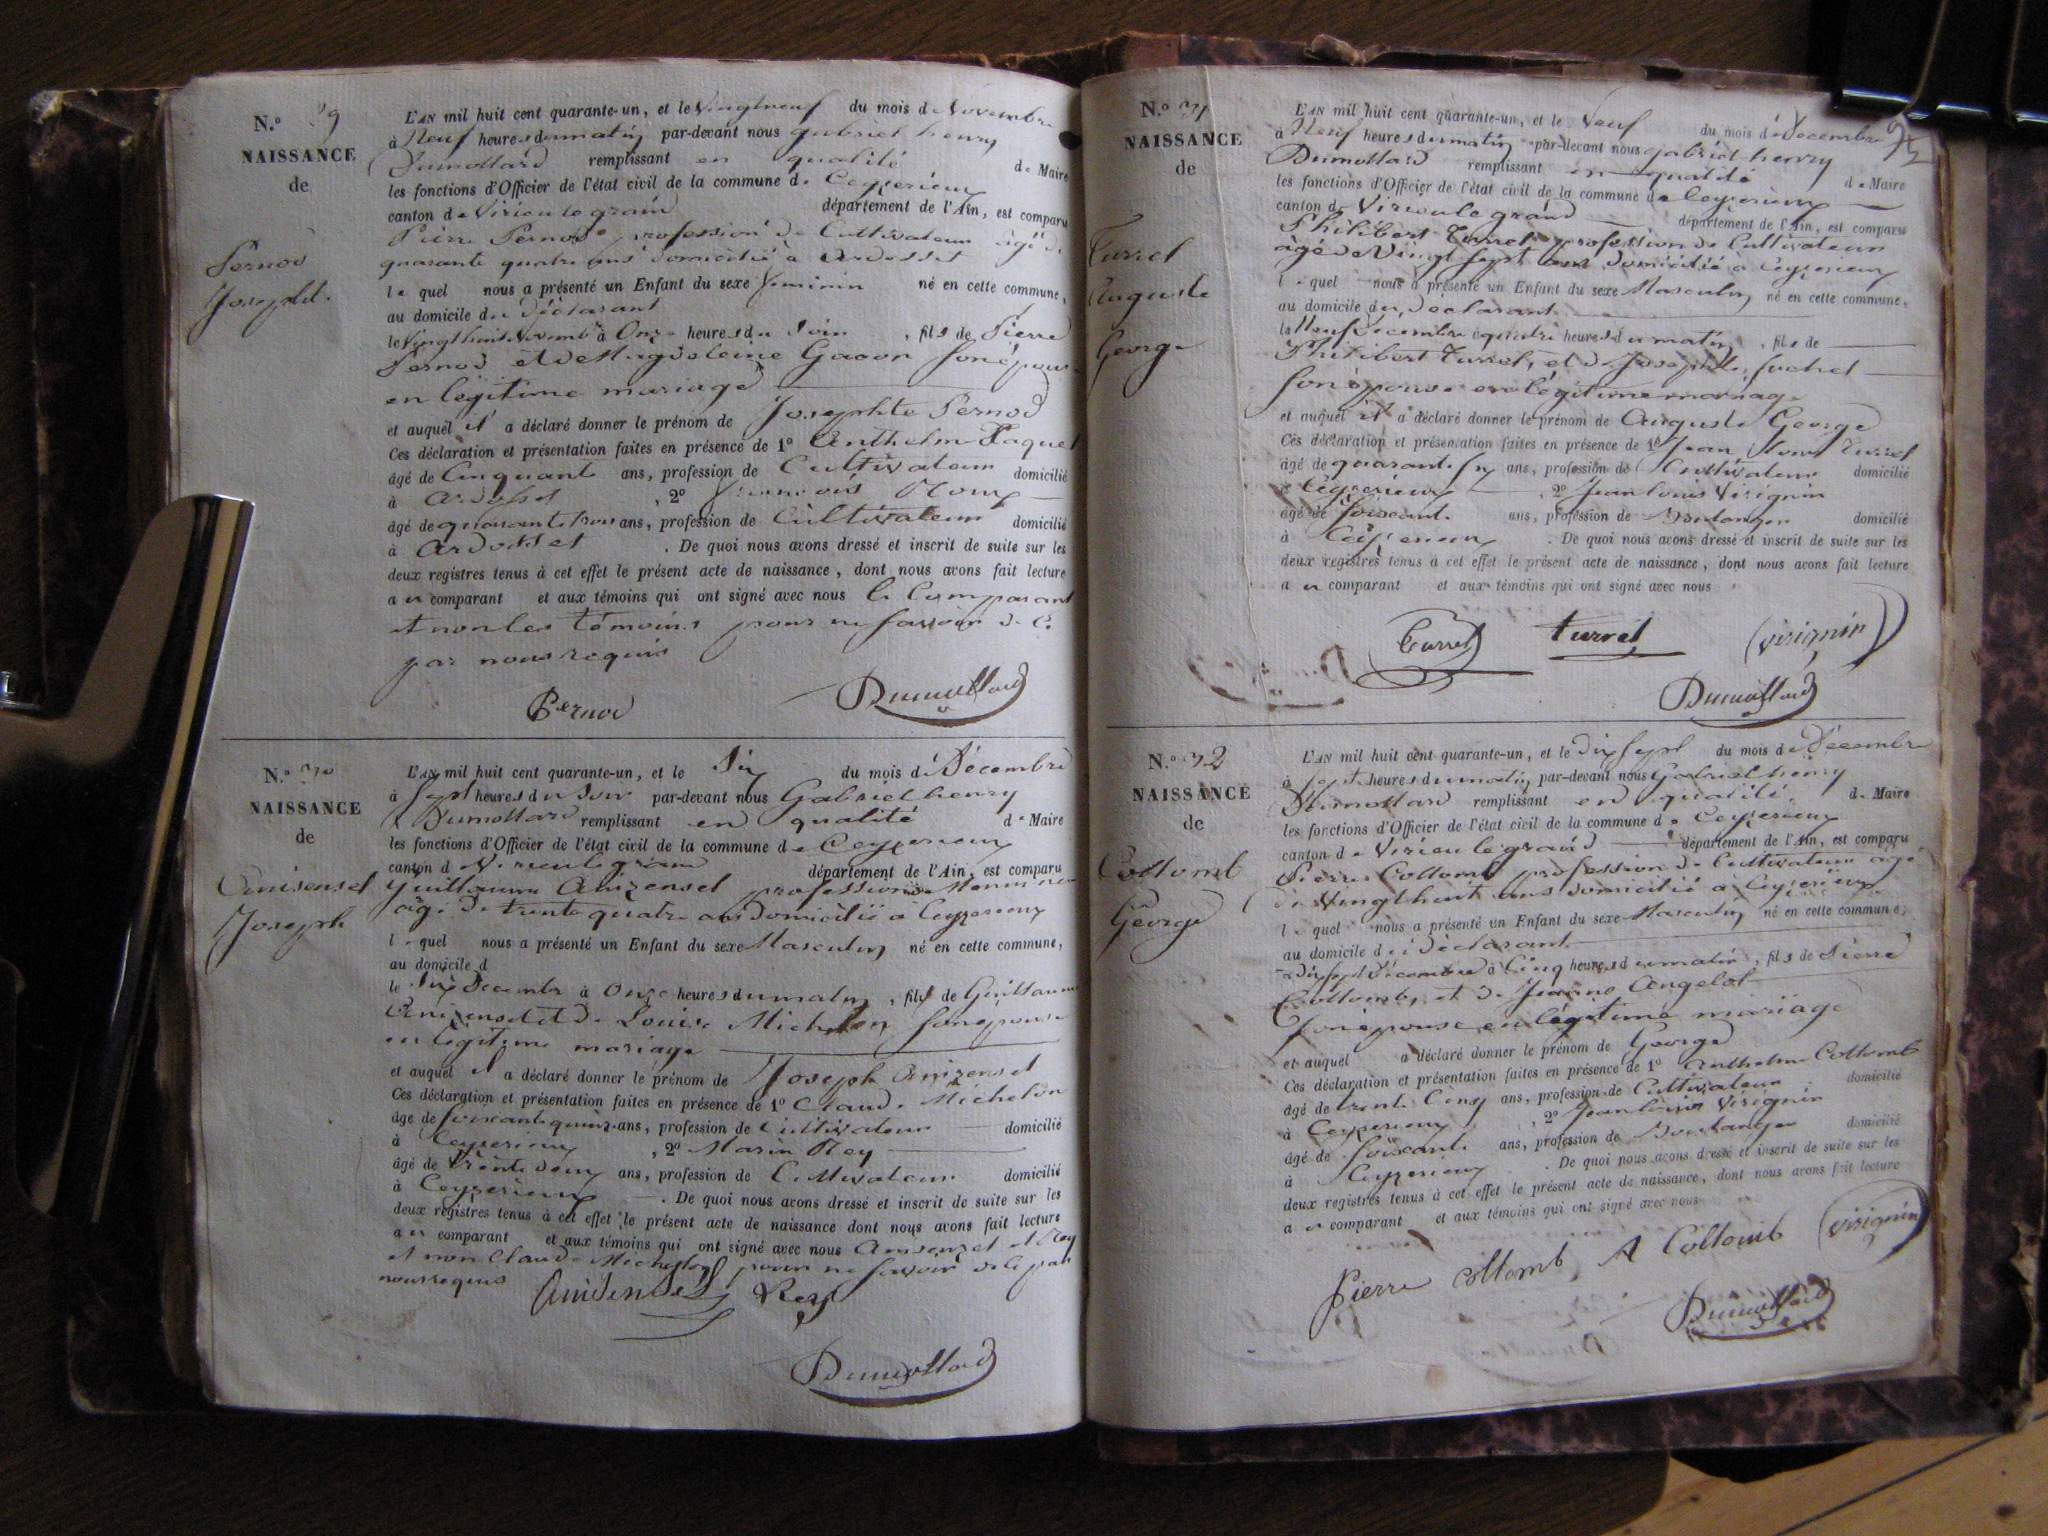 N.° 29
NAISSANCE
de
Pernod
Josephte
L'AN mil huit cent quarante-un, et le Vingtneuf du mois de Novembre
à Neuf heures du matin par-devant nous gabriel henry
Dumollard remplissant en qualité de Maire
les fonctions d'Officier de l'état civil de la commune de Ceyzerieux
canton de Virieu le grand département de l'Ain, est comparu
Pierre Pernod profession de Cultivateur âgé de
quarante quatre ans domicilié à Ardosset
le quel nous a présenté un Enfant du sexe féminin né en cette commune,
au domicile du déclarant
le Vingthuit Novembre à Onze heures du Soir, fils de Pierre
Pernod et de Magdeleine son épouse
en légitime mariage
et auquel il a déclaré donner le prénom de Josephte Pernod
Ces déclaration et présentation faites en présence de 1° Anthelme
âgé de Cinquante ans, profession de Cultivateur domicilié
à Ardosset, 2° François
âgé de quarante trois ans, profession de Cultivateur domicilié
à Ardosset. De quoi nous avons dressé et inscrit de suite sur les
deux registres tenus à cet effet le présent acte de naissance, dont nous avons fait lecture
au comparant et aux témoins qui ont signé avec nous le Comparant
et non les témoins pour ne savoir de ce
par nous requis
Pernod Dumollard
N.° 30
NAISSANCE
de
Anisensel
Joseph
L'AN mil huit cent quarante-un, et le Six du mois de Décembre
à Sept heures du Soir par-devant nous Gabriel henry
Dumollard remplissant en qualité de Maire
les fonctions d'Officier de l'état civil de la commune de Ceyzerieux
canton de Virieu le grand département de l'Ain, est comparu
Guillaume Anizensel profession de
âgé de trente quatre ans domicilié à Ceyzerieux
le quel nous a présenté un Enfant du sexe Masculin né en cette commune,
au domicile d
le Six Décembre à Onze heures du matin, fils de Guillaume
Anizensel et de Louise Michelon son épouse
en légitime mariage
et auquel il a déclaré donner le prénom de Joseph Anizensel
Ces déclaration et présentation faites en présence de 1° Claude Michelon
âgé de soixante quinze ans, profession de Cultivateur domicilié
à Ceyzerieux, 2° Marin Rey
âgé de trente deux ans, profession de Cultivateur domicilié
à Ceyzerieux. De quoi nous avons dressé et inscrit de suite sur les
deux registres tenus à cet effet le présent acte de naissance dont nous avons fait lecture
au comparant et aux témoins qui ont signé avec nous Anisenzel et Rey
et non Claude Michelon pour ne savoir de ce par
nous requis Anisensel Rey
Dumollard
N.° 31
NAISSANCE
de
Turrel
Auguste
George
L'AN mil huit cent quarante-un, et le Neuf du mois de Décembre
à Neuf heures du matin par-devant nous gabriel henry
Dumollard remplissant en qualité de Maire
les fonctions d'Officier de l'état civil de la commune de Ceyzerieux
canton de Virieu le grand département de l'Ain, est comparu
Philibert Turrel profession de Cultivateur
âgé de Vingt sept ans domicilié à Ceyzerieux
le quel nous a présenté un Enfant du sexe Masculin né en cette commune,
au domicile du déclarant
le Neuf décembre à quatre heures du matin, fils de
Philibert Turrel, et de Josephte
son épouse en légitime mariage
et auquel il a déclaré donner le prénom de Auguste George
Ces déclaration et présentation faites en présence de 1° Jean Turrel
âgé de quarante six ans, profession de Cultivateur domicilié
à Ceyzerieux, 2° Jean Louis Virignin
âgé de soixante ans, profession de Boulanger domicilié
à Ceyzerieux. De quoi nous avons dressé et inscrit de suite sur les
deux registres tenus à cet effet le présent acte de naissance, dont nous avons fait lecture
au comparant et aux témoins qui ont signé avec nous
Turrel turrel virignin
Dumollard
N.° 32
NAISSANCE
de
Collomb
George
L'AN mil huit cent quarante-un, et le dix Sept du mois de Décembre
à Sept heures du matin par-devant nous Gabriel henry
Dumollard remplissant en qualité de Maire
les fonctions d'Officier de l'état civil de la commune de Ceyzerieux
canton de Virieu le grand département de l'Ain, est comparu
Pierre Collomb profession de Cultivateur âgé
de Vingthuit ans domicilié à Ceyzerieux
le quel nous a présenté un Enfant du sexe Masculin né en cette commune,
au domicile du Déclarant
dix sept décembre à Cinq heures du matin, fils de Pierre
Collomb, et de Jeanne Angelot
son épouse en légitime mariage
et auquel a déclaré donner le prénom de George
Ces déclaration et présentation faites en présence de 1° Anthelme Collomb
âgé de trente Cinq ans, profession de Cultivateur domicilié
à Ceyzerieux, 2° Jean louis Virignin
âgé de soixante ans, profession de Boulanger domicilié
à Ceyzerieux. De quoi nous avons dressé et inscrit de suite sur les
deux registres tenus à cet effet le présent acte de naissance, dont nous avons fait lecture
au comparant et aux témoins qui ont signé avec nous
Pierre collomb A Collomb virignin
Dumollard